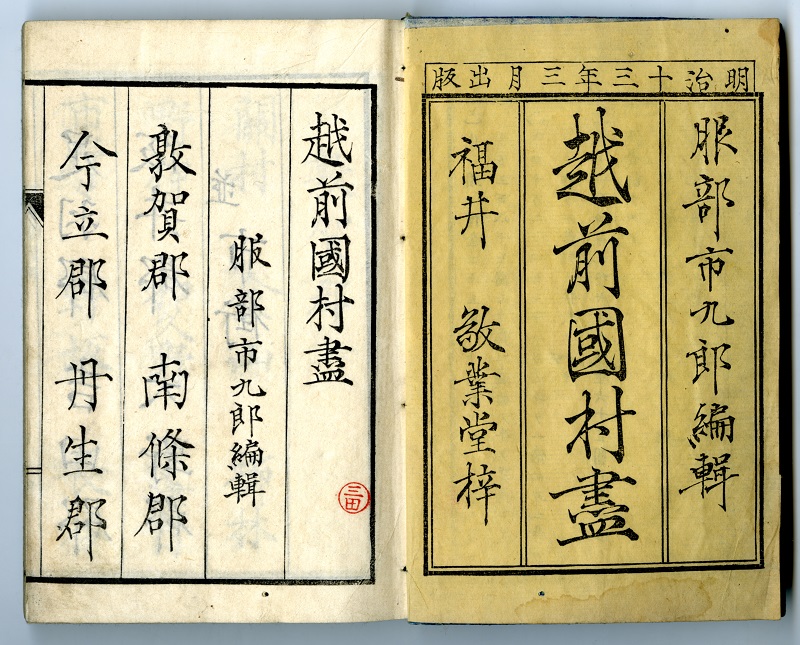 明治十三年三月出版
服部市九郎編輯
越前國村盡
福井 敬業堂梓
越前國村盡
服部市九郎編輯
三田
敦賀郡 南條郡
今立郡 丹生郡